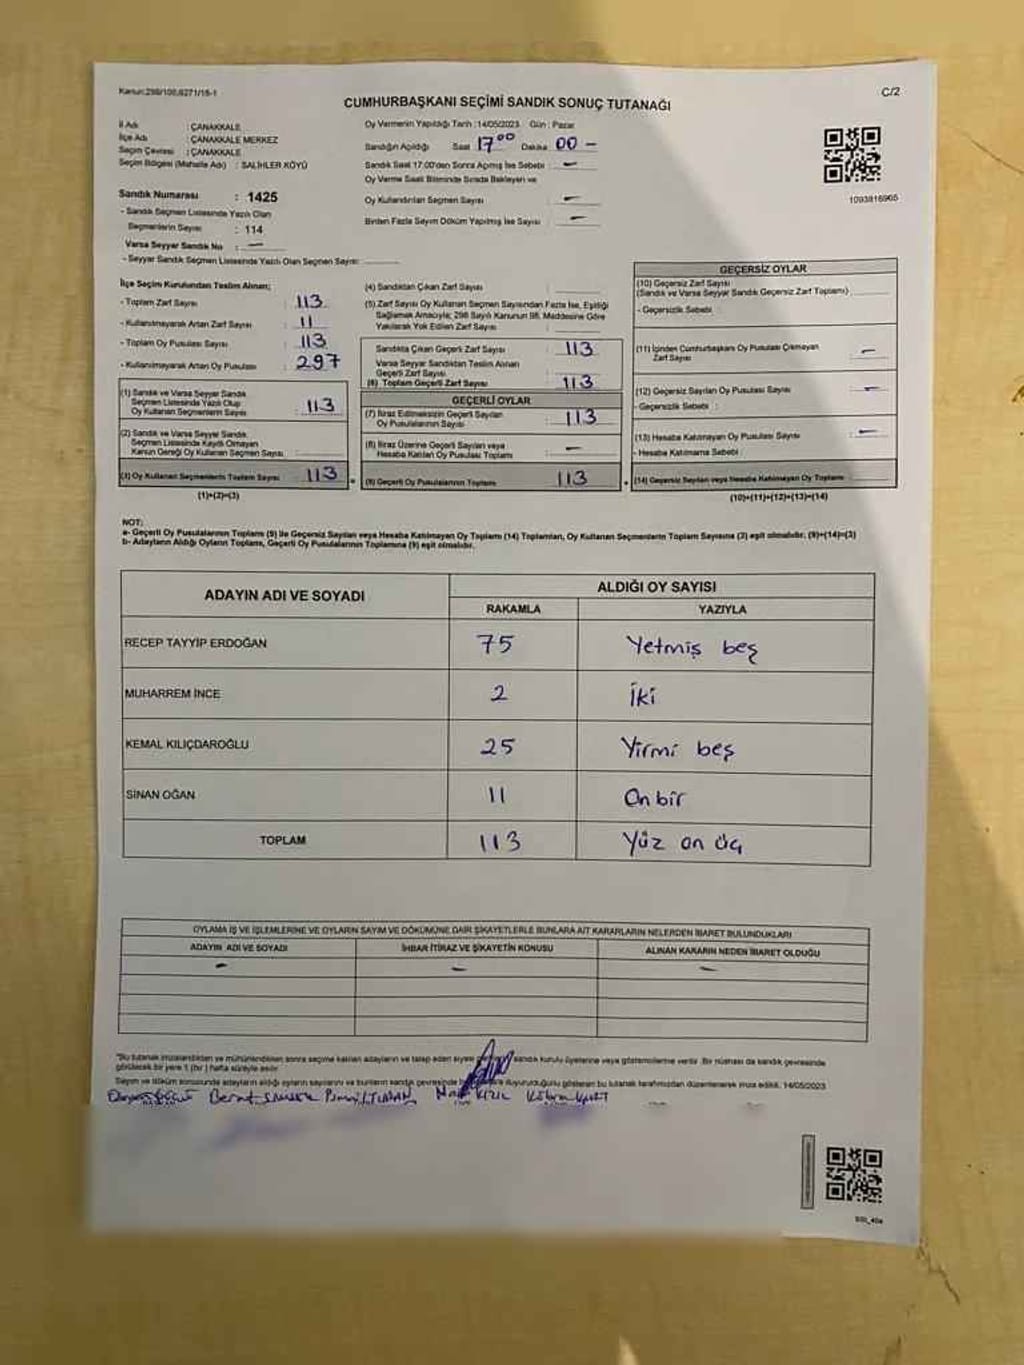 Kanun:298/106,6271/15-1
C/2
CUMHURBAŞKANI SEÇİMİ SANDIK SONUÇ TUTANAĞI
İl Adı : ÇANAKKALE
İlçe Adı : ÇANAKKALE MERKEZ
Seçim Çevresi : ÇANAKKALE
Seçim Bölgesi (Mahalle Adı) : SALİHLER KÖYÜ
Sandık Numarası : 1425
- Sandık Seçmen Listesinde Yazılı Olan
Seçmenlerin Sayısı : 114
Varsa Seyyar Sandık No : —
- Seyyar Sandık Seçmen Listesinde Yazılı Olan Seçmen Sayısı:
Oy Vermenin Yapıldığı Tarih :14/05/2023 Gün : Pazar
Sandığın Açıldığı Saat 17⁰⁰ Dakika 00 -
Sandık Saat 17.00'den Sonra Açılmış İse Sebebi : —
Oy Verme Saati Bitiminde Sırada Bekleyen ve
Oy Kullandırılan Seçmen Sayısı : —
Birden Fazla Sayım Döküm Yapılmış İse Sayısı : —
1093816965
İlçe Seçim Kurulundan Teslim Alınan;
- Toplam Zarf Sayısı : 113
- Kullanılmayarak Artan Zarf Sayısı : 11
- Toplam Oy Pusulası Sayısı : 113
- Kullanılmayarak Artan Oy Pusulası : 297
(1) Sandık ve Varsa Seyyar Sandık
Seçmen Listesinde Yazılı Olup
Oy Kullanan Seçmenlerin Sayısı : 113
(2) Sandık ve Varsa Seyyar Sandık
Seçmen Listesinde Kayıtlı Olmayan
Kanun Gereği Oy Kullanan Seçmen Sayısı :
(3) Oy Kullanan Seçmenlerin Toplam Sayısı : 113
(1)+(2)=(3)
(4) Sandıktan Çıkan Zarf Sayısı :
(5) Zarf Sayısı Oy Kullanan Seçmen Sayısından Fazla İse, Eşitliği
Sağlamak Amacıyla; 298 Sayılı Kanunun 98. Maddesine Göre
Yakılarak Yok Edilen Zarf Sayısı :
Sandıkta Çıkan Geçerli Zarf Sayısı : 113
Varsa Seyyar Sandıktan Teslim Alınan
Geçerli Zarf Sayısı :
(6) Toplam Geçerli Zarf Sayısı : 113
GEÇERLİ OYLAR
(7) İtiraz Edilmeksizin Geçerli Sayılan
Oy Pusulalarının Sayısı : 113
(8) İtiraz Üzerine Geçerli Sayılan veya
Hesaba Katılan Oy Pusulası Toplamı : —
(9) Geçerli Oy Pusulalarının Toplamı : 113
GEÇERSİZ OYLAR
(10) Geçersiz Zarf Sayısı
(Sandık ve Varsa Seyyar Sandık Geçersiz Zarf Toplamı)
- Geçersizlik Sebebi :
(11) İçinden Cumhurbaşkanı Oy Pusulası Çıkmayan
Zarf Sayısı : —
(12) Geçersiz Sayılan Oy Pusulası Sayısı : —
- Geçersizlik Sebebi :
(13) Hesaba Katılmayan Oy Pusulası Sayısı : —
- Hesaba Katılmama Sebebi :
(14) Geçersiz Sayılan veya Hesaba Katılmayan Oy Toplamı
(10)+(11)+(12)+(13)=(14)
NOT:
a- Geçerli Oy Pusulalarının Toplamı (9) ile Geçersiz Sayılan veya Hesaba Katılmayan Oy Toplamı (14) Toplamları, Oy Kullanan Seçmenlerin Toplam Sayısına (3) eşit olmalıdır. (9)+(14)=(3)
b- Adayların Aldığı Oyların Toplamı, Geçerli Oy Pusulalarının Toplamına (9) eşit olmalıdır.
ADAYIN ADI VE SOYADI
ALDIĞI OY SAYISI
RAKAMLA YAZIYLA
RECEP TAYYİP ERDOĞAN 75 Yetmiş beş
MUHARREM İNCE 2 İki
KEMAL KILIÇDAROĞLU 25 Yirmi beş
SİNAN OĞAN 11 On bir
TOPLAM 113 Yüz on üç
OYLAMA İŞ VE İŞLEMLERİNE VE OYLARIN SAYIM VE DÖKÜMÜNE DAİR ŞİKAYETLERLE BUNLARA AİT KARARLARIN NELERDEN İBARET BULUNDUKLARI
ADAYIN ADI VE SOYADI İHBAR İTİRAZ VE ŞİKAYETİN KONUSU ALINAN KARARIN NEDEN İBARET OLDUĞU
— — —
"Bu tutanak imzalandıktan ve mühürlendikten sonra seçime katılan adayların ve talep eden siyasi sandık kurulu üyelerine veya gözlemcilerine verilir. Bir nüshası da sandık çevresinde
görülecek bir yere 1 (bir) hafta süreyle asılır.
Sayım ve döküm sonucunda adayların aldığı oyların sayılarını ve bunların sandık çevresinde duyurulduğunu gösteren bu tutanak tarafımızdan düzenlenerek imza edildi. 14/05/2023
Berat KIZIL Kübra KURT